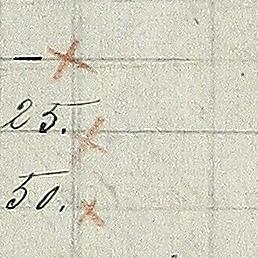 —
25.
50.